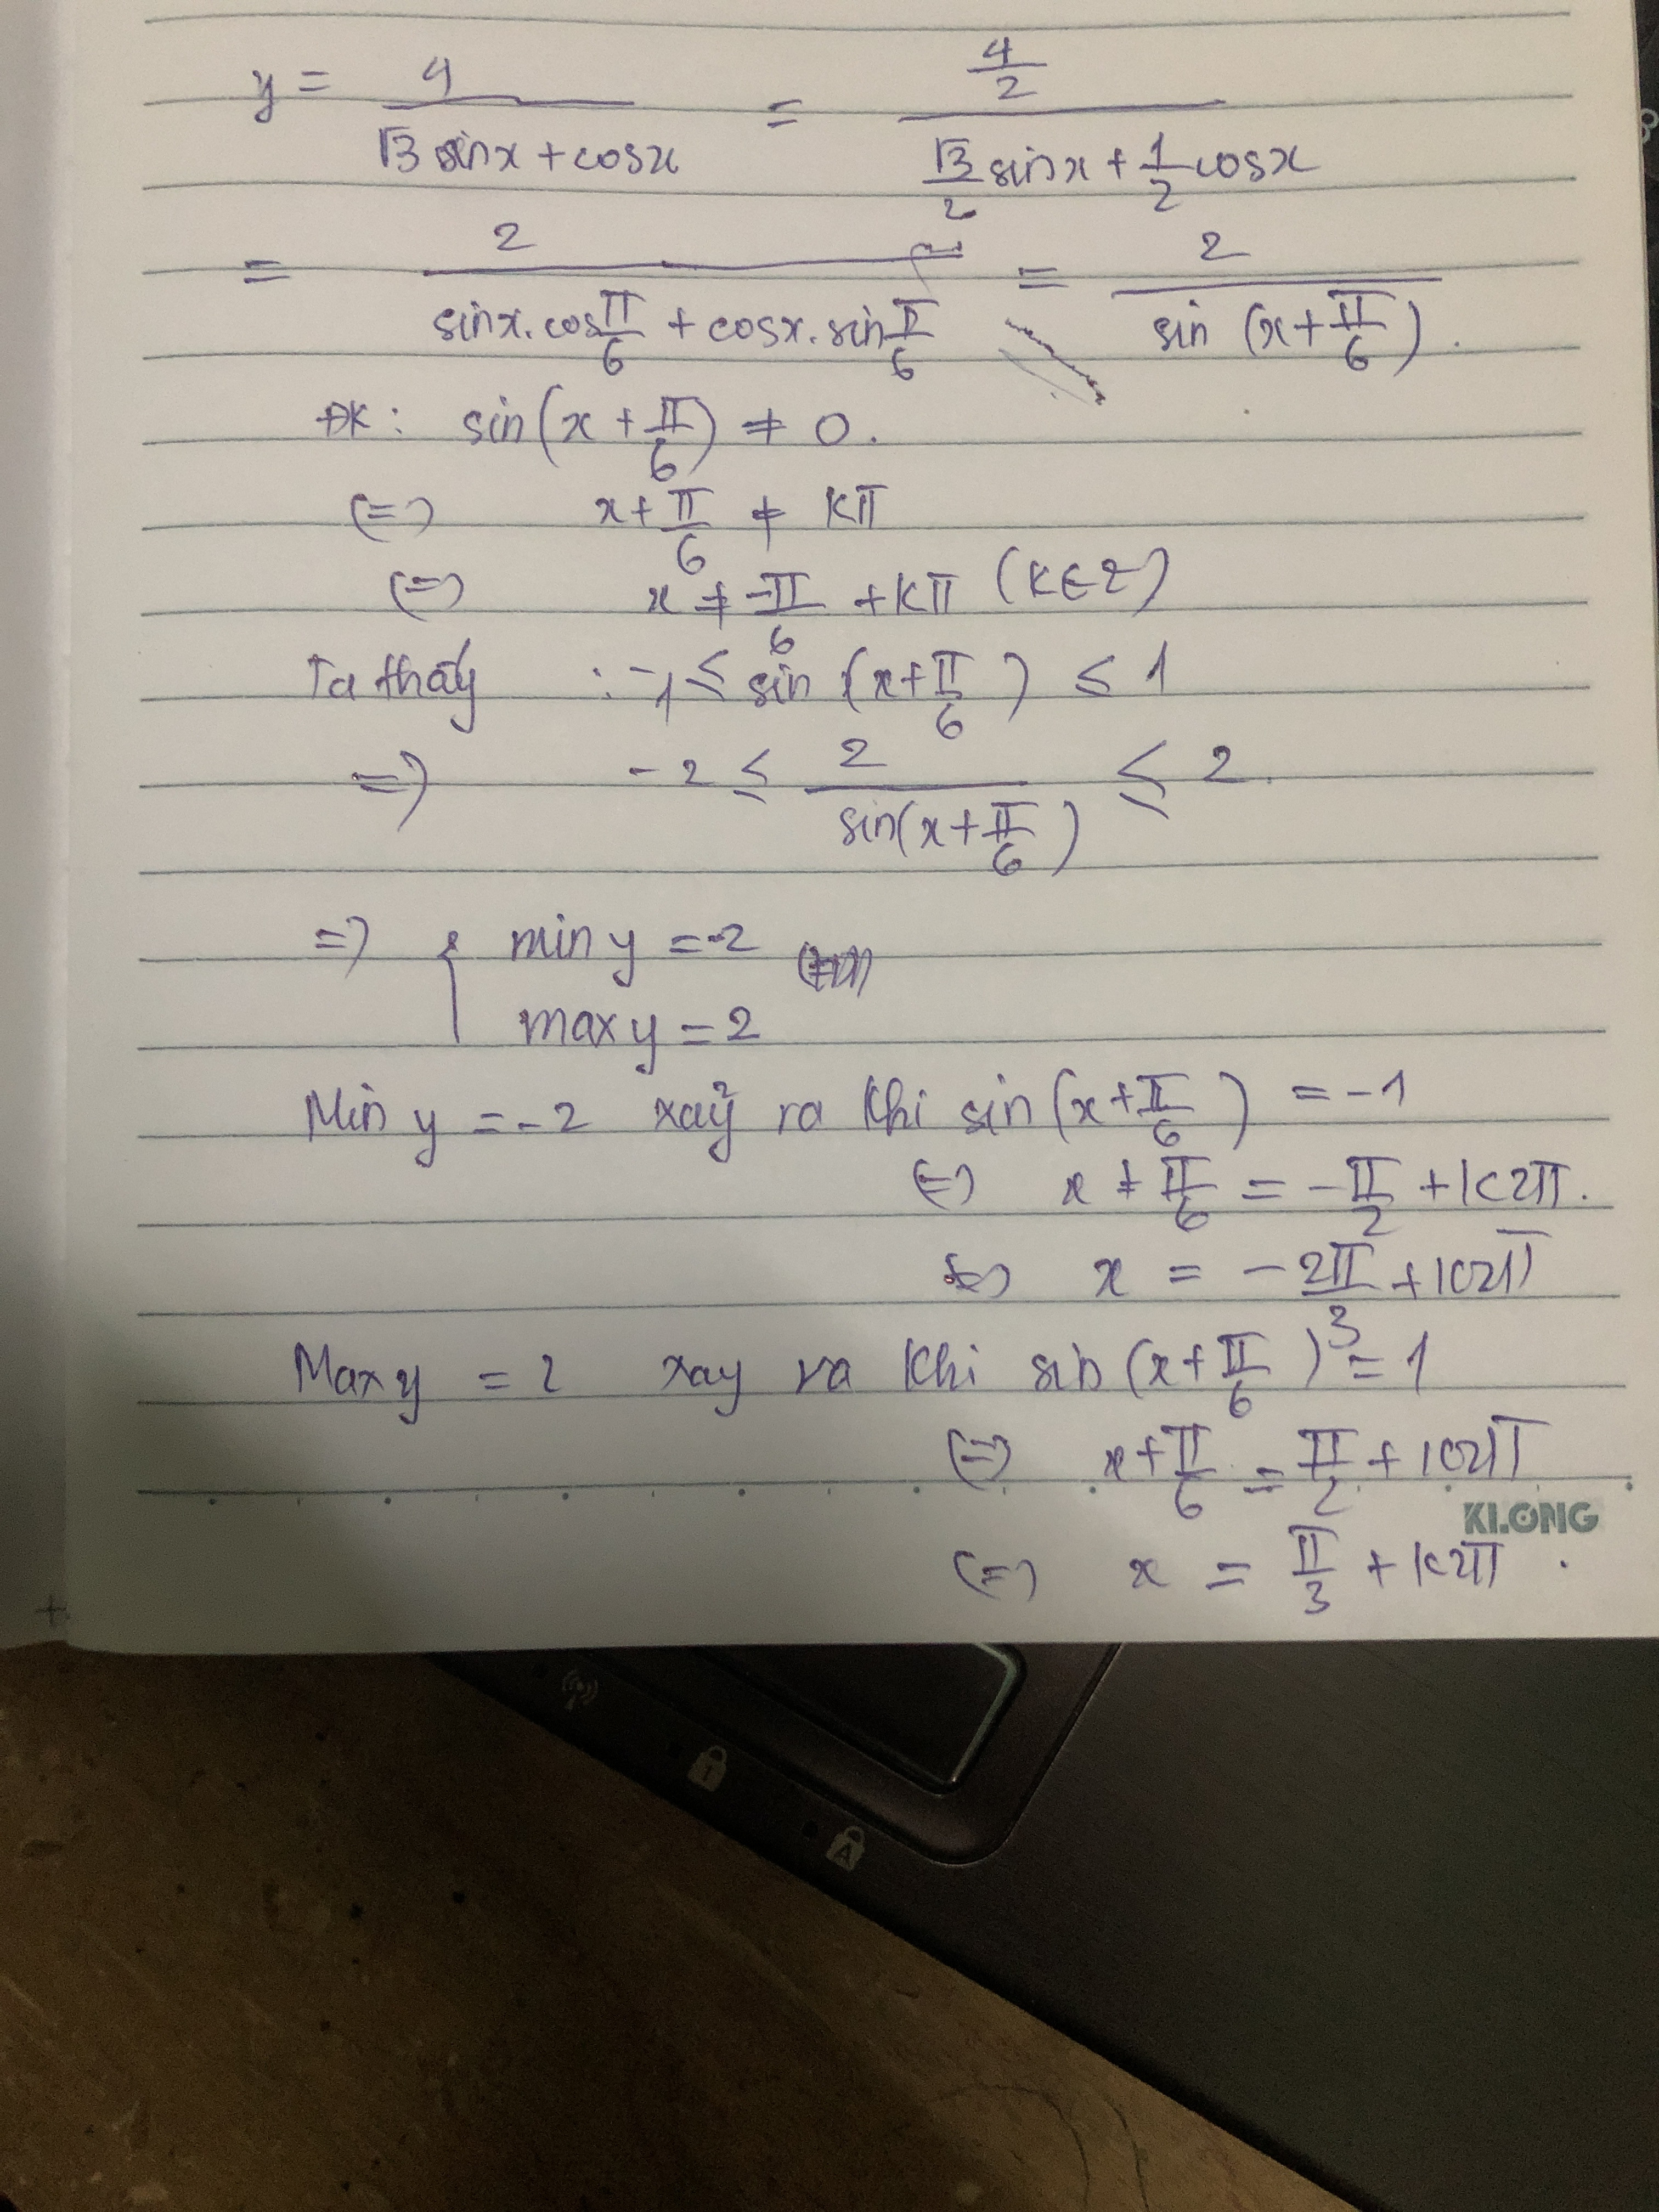 y = 4/(√3 sinx + cosx) = (4/2)/(√3/2 sinx + 1/2 cosx)
= 2/(sinx.cos π/6 + cosx.sin π/6) = 2/(sin (x + π/6)).
ĐK: sin(x + π/6) ≠ 0.
(=) x + π/6 ≠ kπ
(=) x ≠ -π/6 + kπ (k∈Z)
Ta thấy : -1 ≤ sin (x + π/6) ≤ 1
=) -2 ≤ 2/(sin(x + π/6)) ≤ 2.
=) { min y = -2
max y = 2
Min y = -2 xảy ra khi sin(x + π/6) = -1
(=) x + π/6 = -π/2 + k2π.
(=) x = -2π/3 + k2π
Max y = 2 xay ra khi sin (x + π/6) = 1
(=) x + π/6 = π/2 + k2π
KLONG
(=) x = π/3 + k2π.
1
A